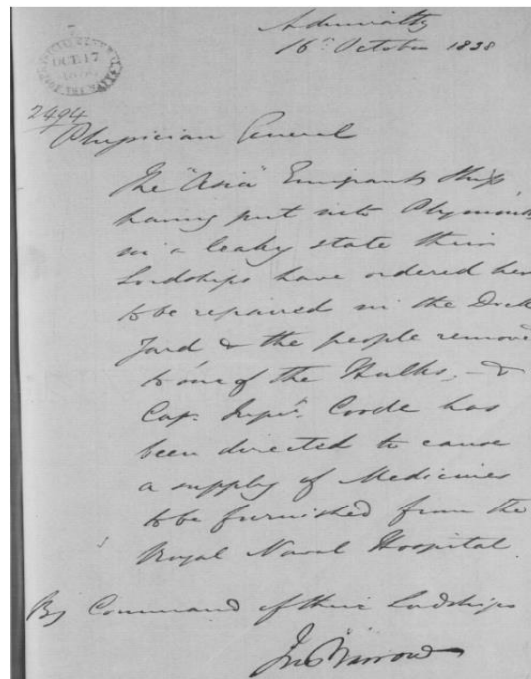 Admiralty
16th October 1838
OCT 17
2494
Physician General
The "Asia" Emigrant Ship
having put into Plymouth
in a leaky state their
Lordships have ordered her
to be repaired in the Dock
Yard & the people remove
to one of the Hulks, - &
Cap. Supt. Coode has
been directed to cause
a supply of Medicines
to be furnished from the
Royal Naval Hospital
By Command of their Lordships
Jn Barrow